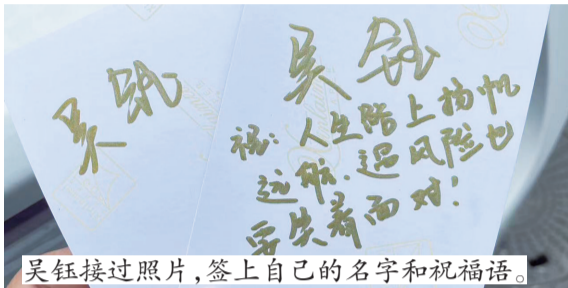 吴钰
吴钰
祝:人生路上扬帆
远航、遇风险也
要笑着面对!
吴钰接过照片,签上自己的名字和祝福语。